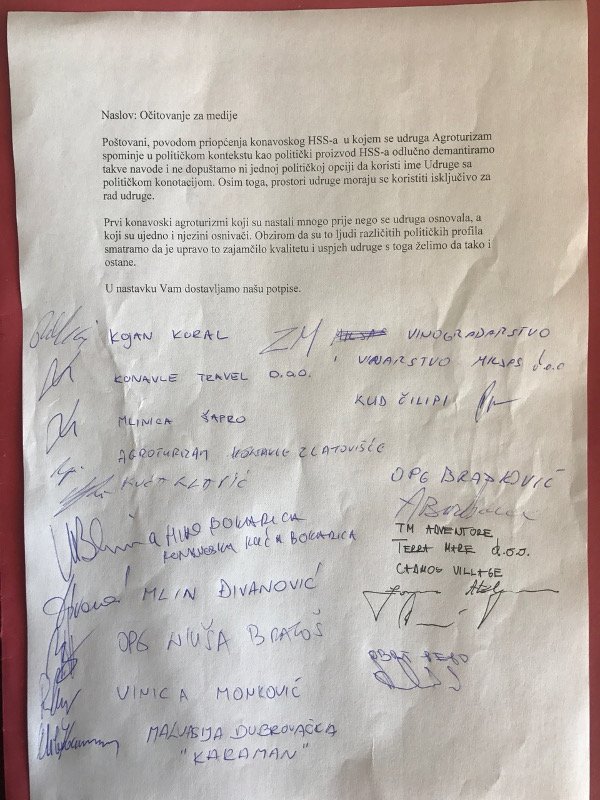 Naslov: Očitovanje za medije
Poštovani, povodom priopćenja konavoskog HSS-a u kojem se udruga Agroturizam
spominje u političkom kontekstu kao politički proizvod HSS-a odlučno demantiramo
takve navode i ne dopuštamo ni jednoj političkoj opciji da koristi ime Udruge sa
političkom konotacijom. Osim toga, prostori udruge moraju se koristiti isključivo za
rad udruge.
Prvi konavoski agroturizmi koji su nastali mnogo prije nego se udruga osnovala, a
koji su ujedno i njezini osnivači. Obzirom da su to ljudi različitih političkih profila
smatramo da je upravo to zajamčilo kvalitetu i uspjeh udruge s toga želimo da tako i
ostane.
U nastavku Vam dostavljamo našu potpise.
KOJAN KORAL
KONAVLE TRAVEL D.O.O.
MLINICA ŠAPRO
AGROTURIZAM KONAVLE ZLATOVIŠĆE
KUĆA KLARIĆ
NIKO BOKARICA
KONAVOSKA KUĆA BOKARICA
MLIN ĐIVANOVIĆ
OPG NIUŠA BRATOŠ
VINICA MONKOVIĆ
MALVASIJA DUBROVAČKA
"KARAMAN"
VINOGRADARSTVO
VINARSTVO d.o.o
KUD ČILIPI
OPG BRAJKOVIĆ
TM ADVENTURE
TERRA MARE d.o.o.
CADMOS VILLAGE